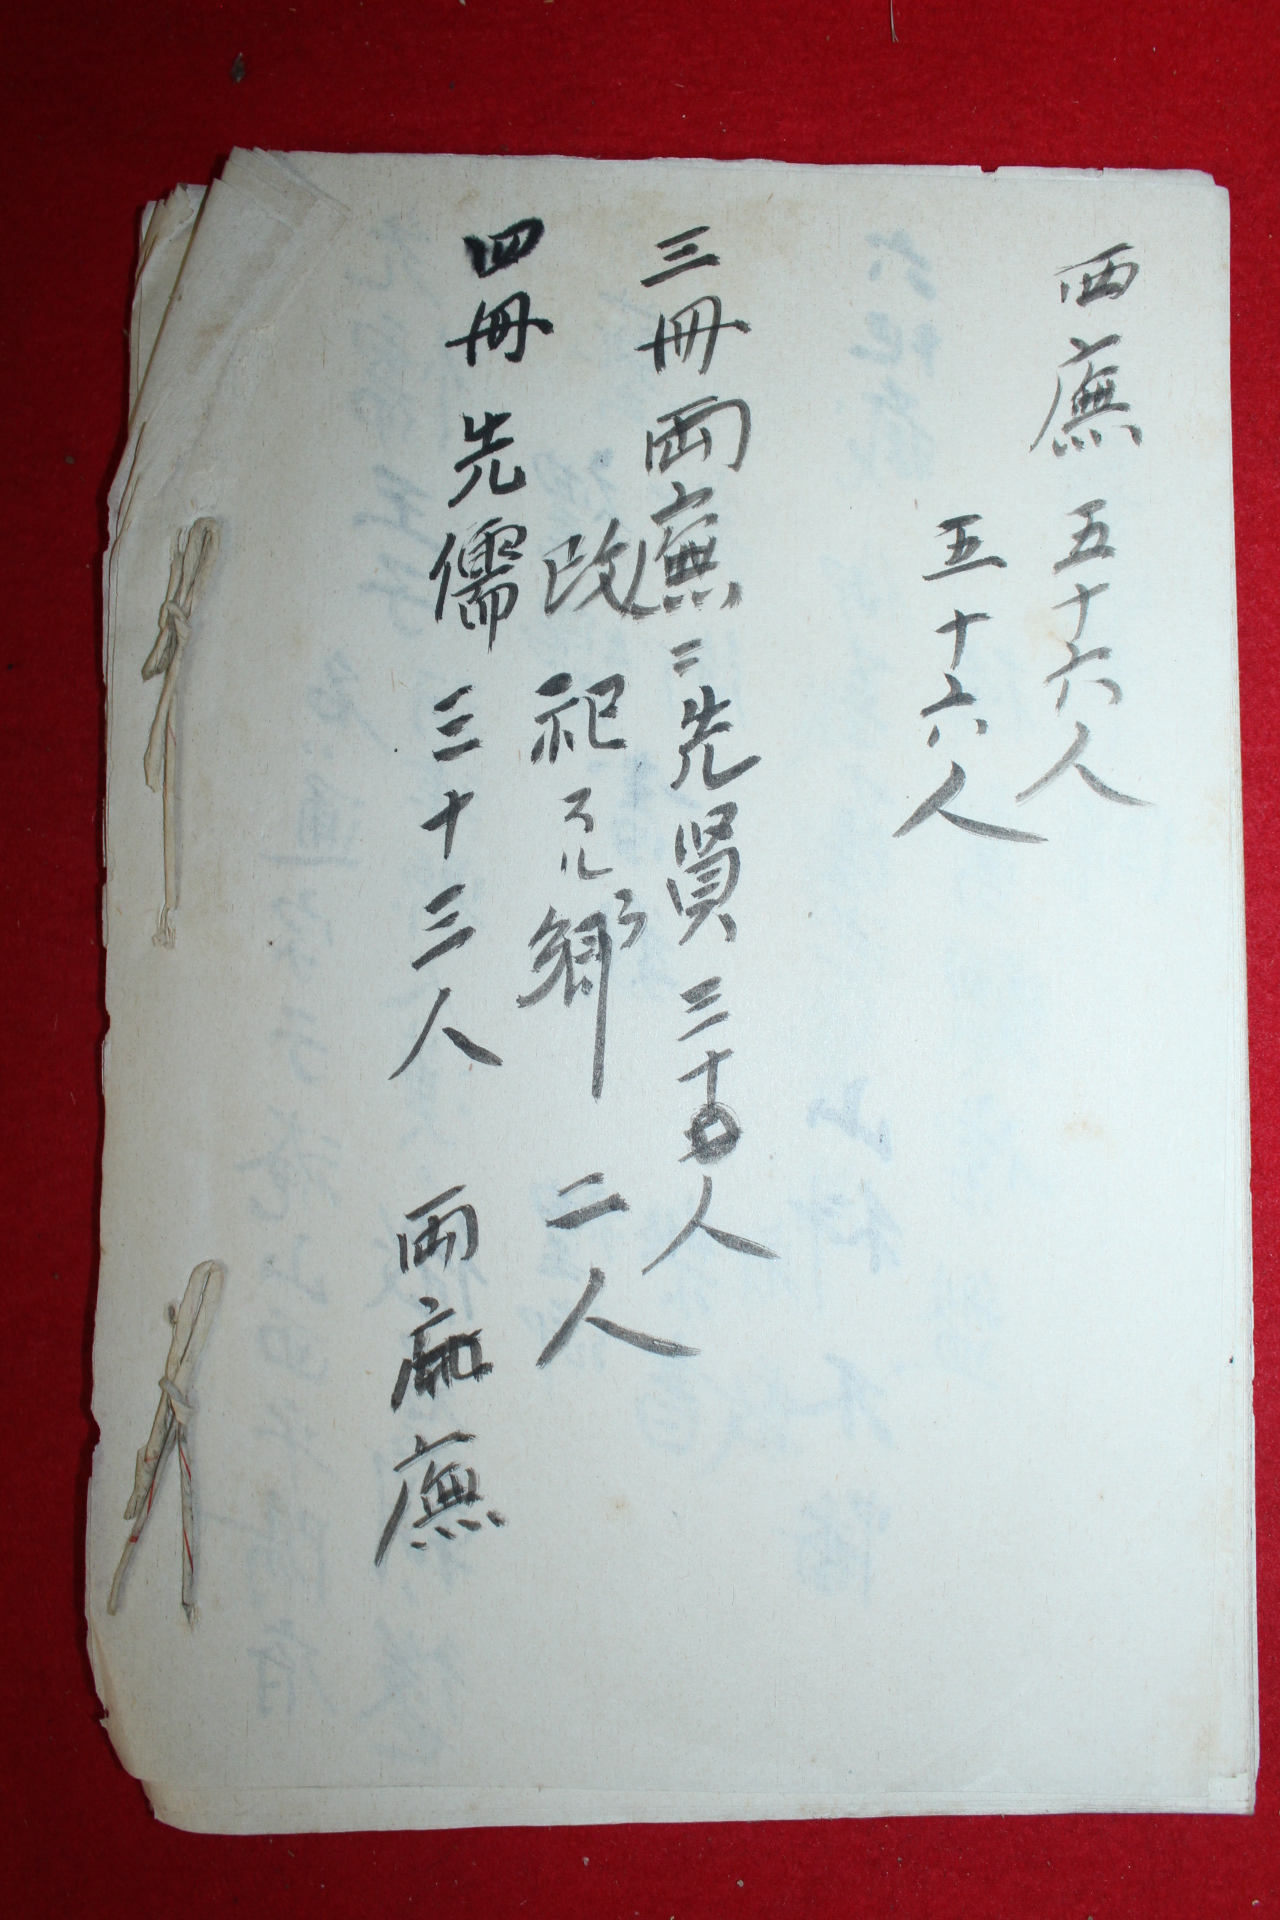 西廡五十六人
五十六人
三冊両廡二先賢三十人
改祀于鄕二人
四冊先儒三十三人両廡